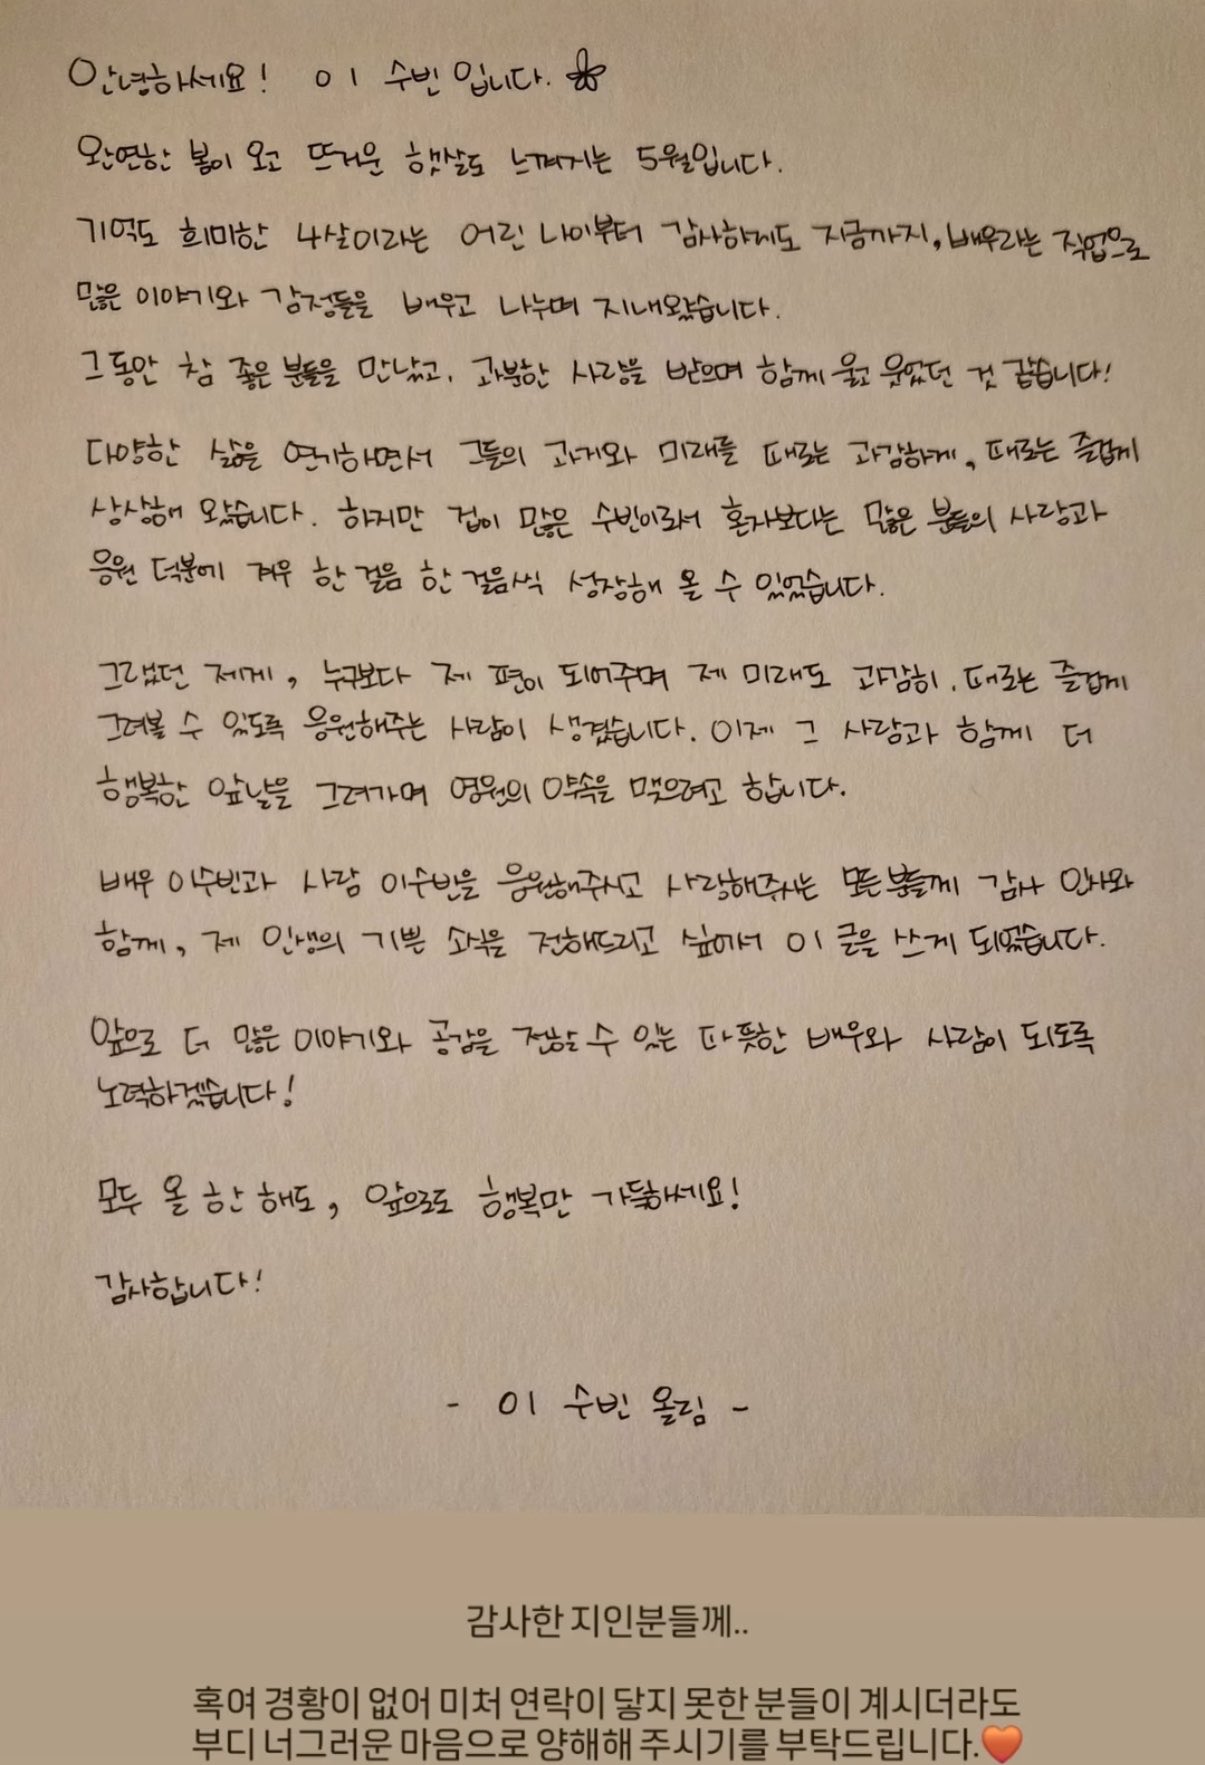 안녕하세요! 이 수빈입니다.
완연한 봄이 오고 뜨거운 햇살도 느껴지는 5월입니다.
기억도 희미한 4살이라는 어린 나이부터 감사하게도 지금까지, 배우라는 직업으로
많은 이야기와 감정들을 배우고 나누며 지내왔습니다.
그동안 참 좋은 분들을 만났고, 과분한 사랑을 받으며 함께 울고 웃었던 것 같습니다!
다양한 삶을 연기하면서 그들의 과거와 미래를 때로는 과감하게, 때로는 즐겁게
상상해 왔습니다. 하지만 겁이 많은 수빈이로서 혼자보다는 많은 분들의 사랑과
응원 덕분에 겨우 한 걸음 한 걸음씩 성장해 올 수 있었습니다.
그랬던 제게, 누구보다 제 편이 되어주며 제 미래도 과감히, 때로는 즐겁게
그려볼 수 있도록 응원해주는 사람이 생겼습니다. 이제 그 사람과 함께 더
행복한 앞날을 그려가며 영원의 약속을 맺으려고 합니다.
배우 이수빈과 사람 이수빈을 응원해주시고 사랑해주시는 모든 분들께 감사 인사와
함께, 제 인생의 기쁜 소식을 전해드리고 싶어서 이 글을 쓰게 되었습니다.
앞으로 더 많은 이야기와 공감을 전할 수 있는 따뜻한 배우와 사람이 되도록
노력하겠습니다!
모두 올 한 해도, 앞으로도 행복만 가득하세요!
감사합니다!
- 이 수빈 올림 -
감사한 지인분들께..
혹여 경황이 없어 미처 연락이 닿지 못한 분들이 계시더라도
부디 너그러운 마음으로 양해해 주시기를 부탁드립니다.❤️